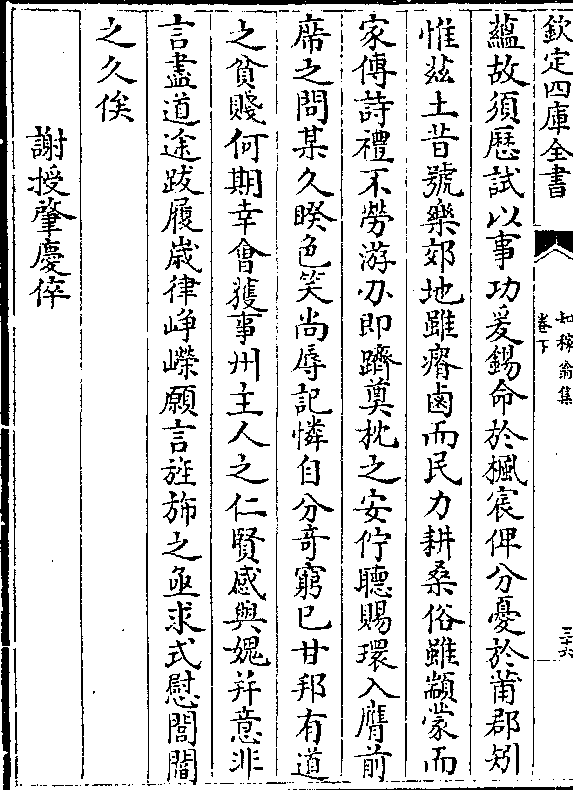 欽定四庫全書
知稼翁集
卷下
三十六
蘊故須歴試以事功爰錫命於楓宸俾分憂於莆郡矧
惟兹土昔號樂郊地雖瘠鹵而民力耕桑俗雖顓蒙而
家傳詩禮不勞游刃即躋奠枕之安佇聽賜環入膺前
席之問某久暌色笑尚辱記憐自分竒窮已甘邦有道
之貧賤何期幸㑹獲事州主人之仁賢感與媿并意非
言盡道途跋履歳律崢嶸願言旌斾之亟来式慰閭閻
之久俟
謝授肇慶倅